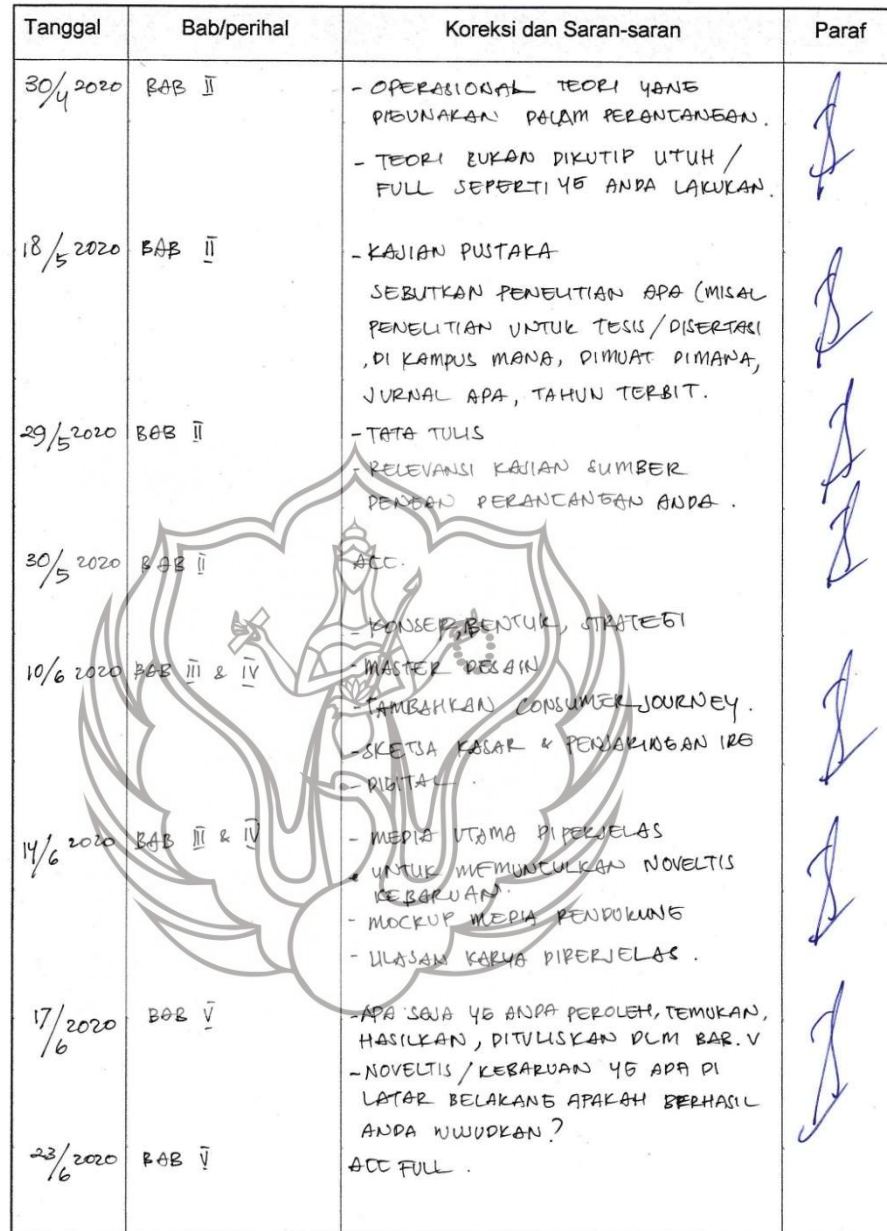 Tanggal Bab/perihal Koreksi dan Saran-saran Paraf
30/4 2020 BAB II - OPERASIONAL TEORI YANG
DIGUNAKAN DALAM PERANCANGAN.
- TEORI BUKAN DIKUTIP UTUH /
FULL SEPERTI YG ANDA LAKUKAN.
18/5 2020 BAB II - KAJIAN PUSTAKA
SEBUTKAN PENELITIAN APA (MISAL
PENELITIAN UNTUK TESIS/DISERTASI
, DI KAMPUS MANA, DIMUAT DIMANA,
JURNAL APA, TAHUN TERBIT.
29/5 2020 BAB II - TATA TULIS
- RELEVANSI KAJIAN SUMBER
DENGAN PERANCANGAN ANDA.
30/5 2020 BAB II ACC.
- KONSEP, BENTUK, STRATEGI
10/6 2020 BAB III & IV - MASTER DESAIN
- TAMBAHKAN CONSUMER JOURNEY.
- SKETSA KASAR & PENJARINGAN IDE
- DIGITAL.
14/6 2020 BAB III & IV - MEDIA UTAMA DIPERJELAS
UNTUK MEMUNCULKAN NOVELTIS
KEBARUAN.
- MOCKUP MEDIA PENDUKUNG
- ULASAN KARYA DIPERJELAS.
17/6 2020 BAB V - APA SAJA YG ANDA PEROLEH, TEMUKAN,
HASILKAN, DITULISKAN DLM BAB. V
- NOVELTIS / KEBARUAN YG ADA DI
LATAR BELAKANG APAKAH BERHASIL
ANDA WUJUDKAN?
23/6 2020 BAB V ACC FULL.